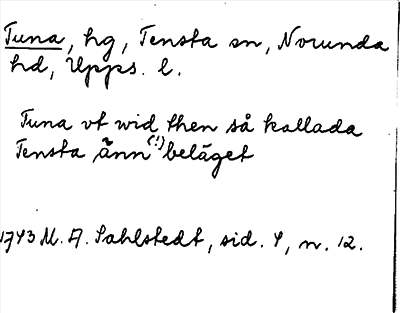 Tuna, hg, Tensta sn, Norunda
hd, Upps. l.
Tuna vt wid then så kallada
Tensta ånn (!) beläget
1743 M. A. Sahlstedt, sid. 4, n. 12.